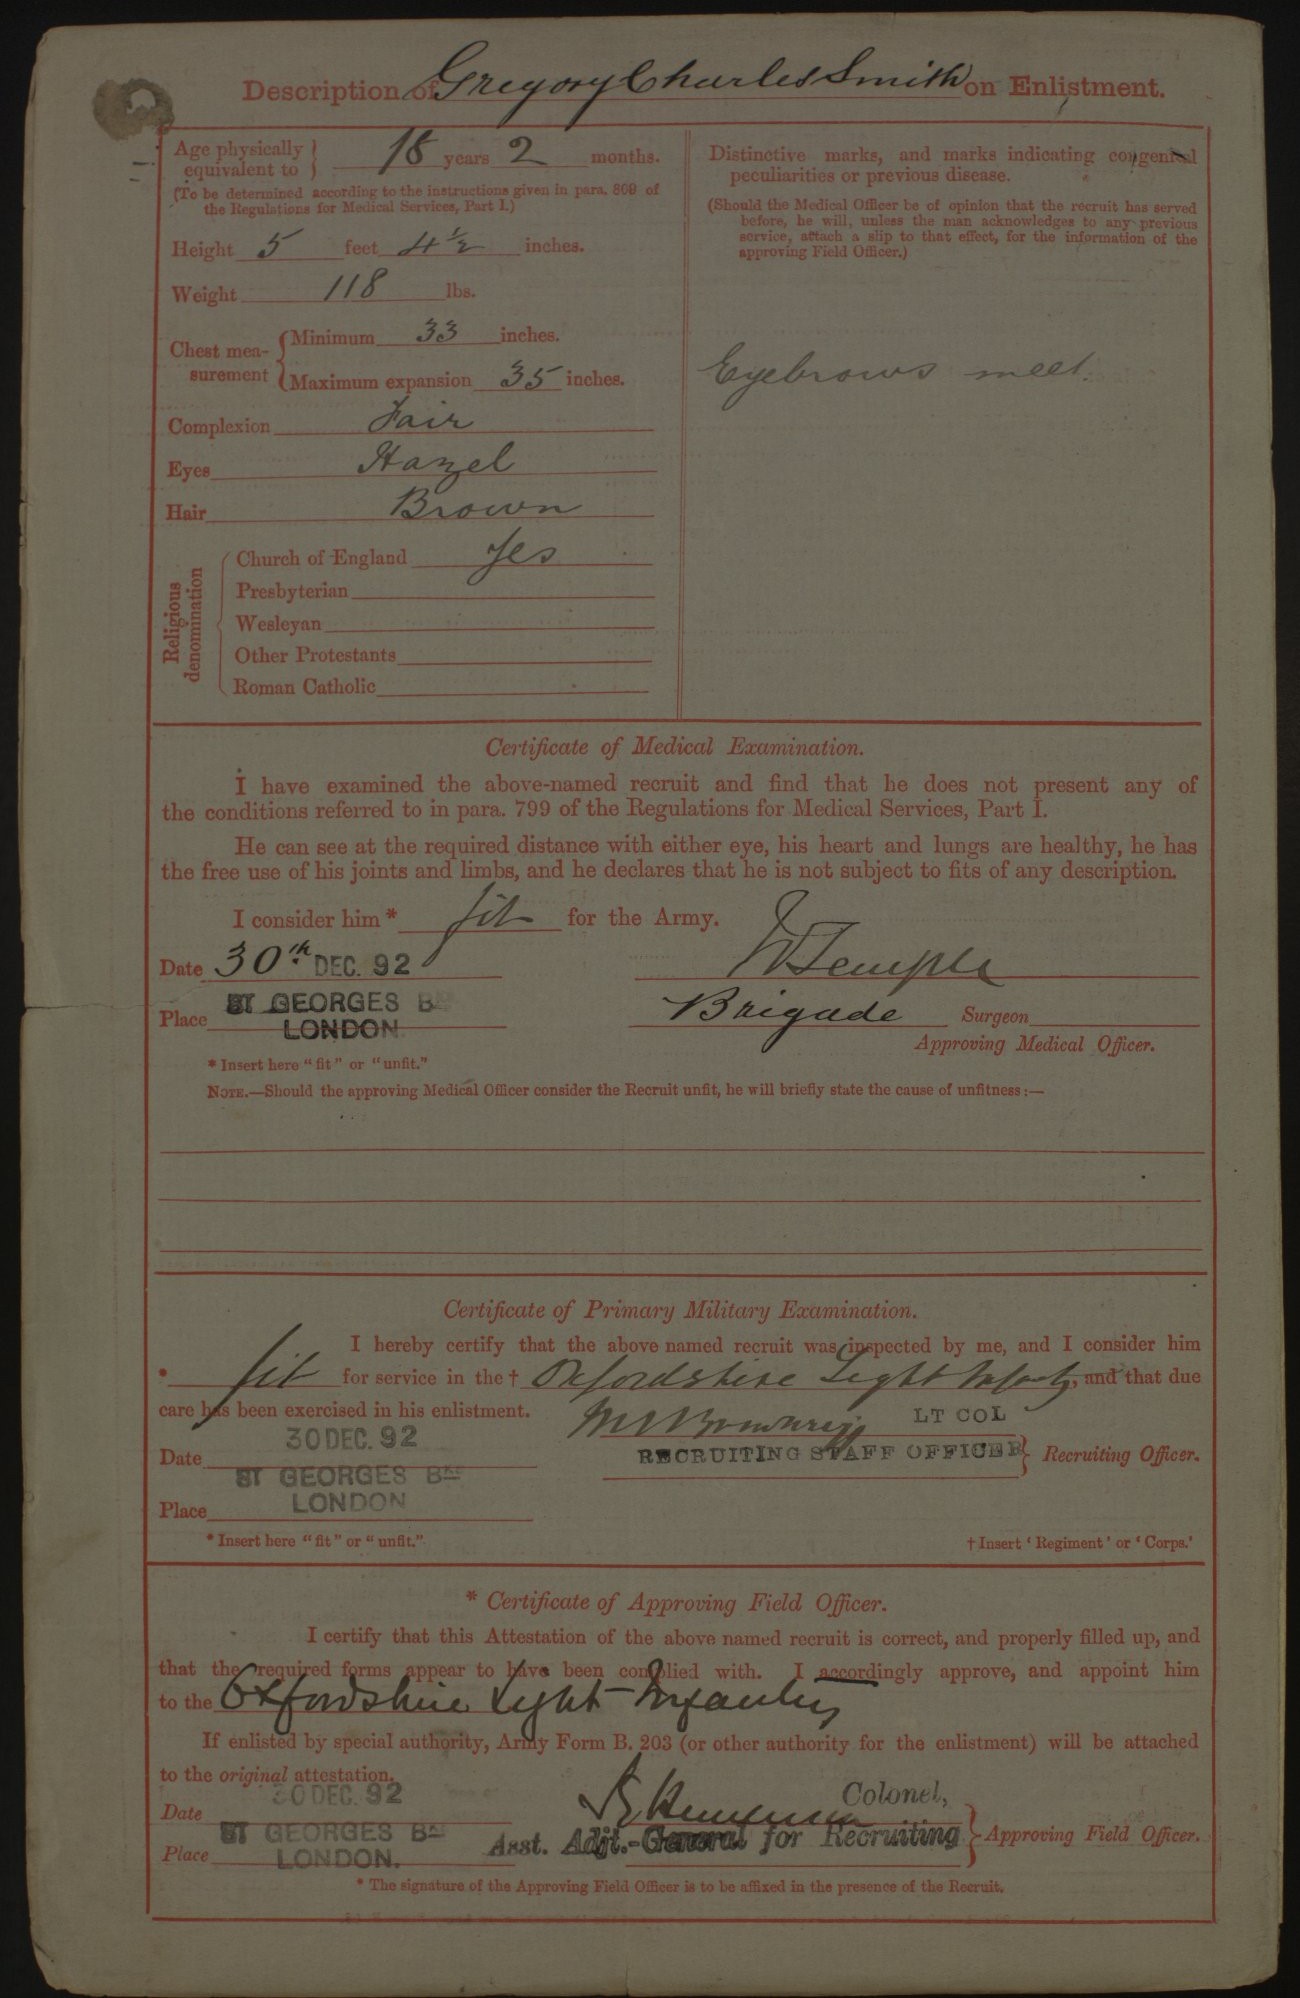 Description of Gregory Charles Smith on Enlistment.
Age physically equivalent to 18 years 2 months.
(To be determined according to the instructions given in para. 809 of
the Regulations for Medical Services, Part I.)
Height 5 feet 4½ inches.
Weight 118 lbs.
Chest mea-
surement
Minimum 33 inches.
Maximum expansion 35 inches.
Complexion Fair
Eyes Hazel
Hair Brown
Religious
denomination
Church of England Yes
Presbyterian
Wesleyan
Other Protestants
Roman Catholic
Distinctive marks, and marks indicating congenital
peculiarities or previous disease.
(Should the Medical Officer be of opinion that the recruit has served
before, he will, unless the man acknowledges to any previous
service, attach a slip to that effect, for the information of the
approving Field Officer.)
Eyebrows meet.
Certificate of Medical Examination.
I have examined the above-named recruit and find that he does not present any of
the conditions referred to in para. 799 of the Regulations for Medical Services, Part I.
He can see at the required distance with either eye, his heart and lungs are healthy, he has
the free use of his joints and limbs, and he declares that he is not subject to fits of any description.
I consider him * fit for the Army.
Date 30th DEC. 92 W Temple
Place ST GEORGES
LONDON
Brigade Surgeon
Approving Medical Officer.
* Insert here "fit" or "unfit."
NOTE.—Should the approving Medical Officer consider the Recruit unfit, he will briefly state the cause of unfitness:—
Certificate of Primary Military Examination.
I hereby certify that the above named recruit was inspected by me, and I consider him
* fit for service in the † Oxfordshire Light Infantry, and that due
care has been exercised in his enlistment.
LT COL
Date 30 DEC. 92 RECRUITING STAFF OFFICER } Recruiting Officer.
ST GEORGES BKS
Place LONDON
* Insert here "fit" or "unfit." † Insert 'Regiment' or 'Corps.'
* Certificate of Approving Field Officer.
I certify that this Attestation of the above named recruit is correct, and properly filled up, and
that the required forms appear to have been complied with. I accordingly approve, and appoint him
to the Oxfordshire Light Infantry
If enlisted by special authority, Army Form B. 203 (or other authority for the enlistment) will be attached
to the original attestation.
Date 30 DEC. 92 Colonel,
ST GEORGES
Place LONDON.
Asst. Adjt.-General for Recruiting } Approving Field Officer.
* The signature of the Approving Field Officer is to be affixed in the presence of the Recruit.